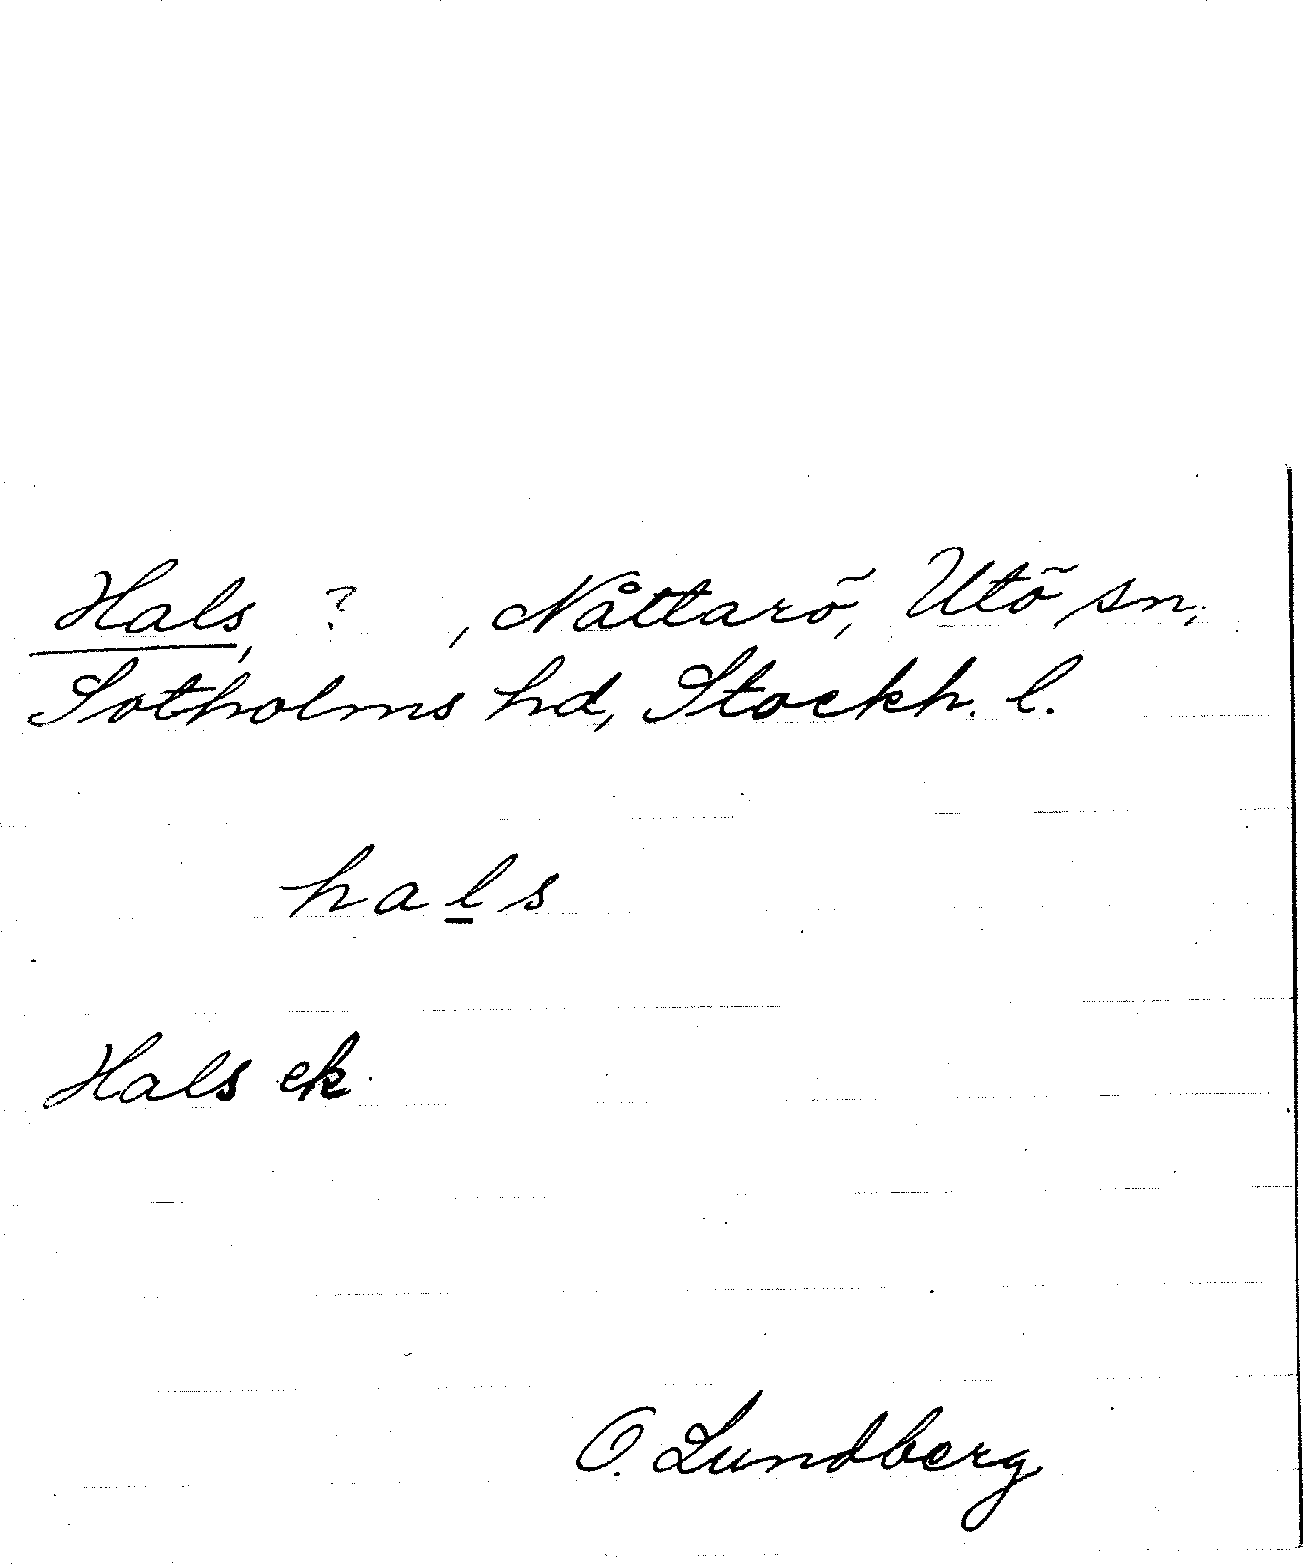 Hals, ? , Nåttarö, Utö sn,
Sotholms hd, Stockh. l.
hals
Hals ek.
O. Lundberg